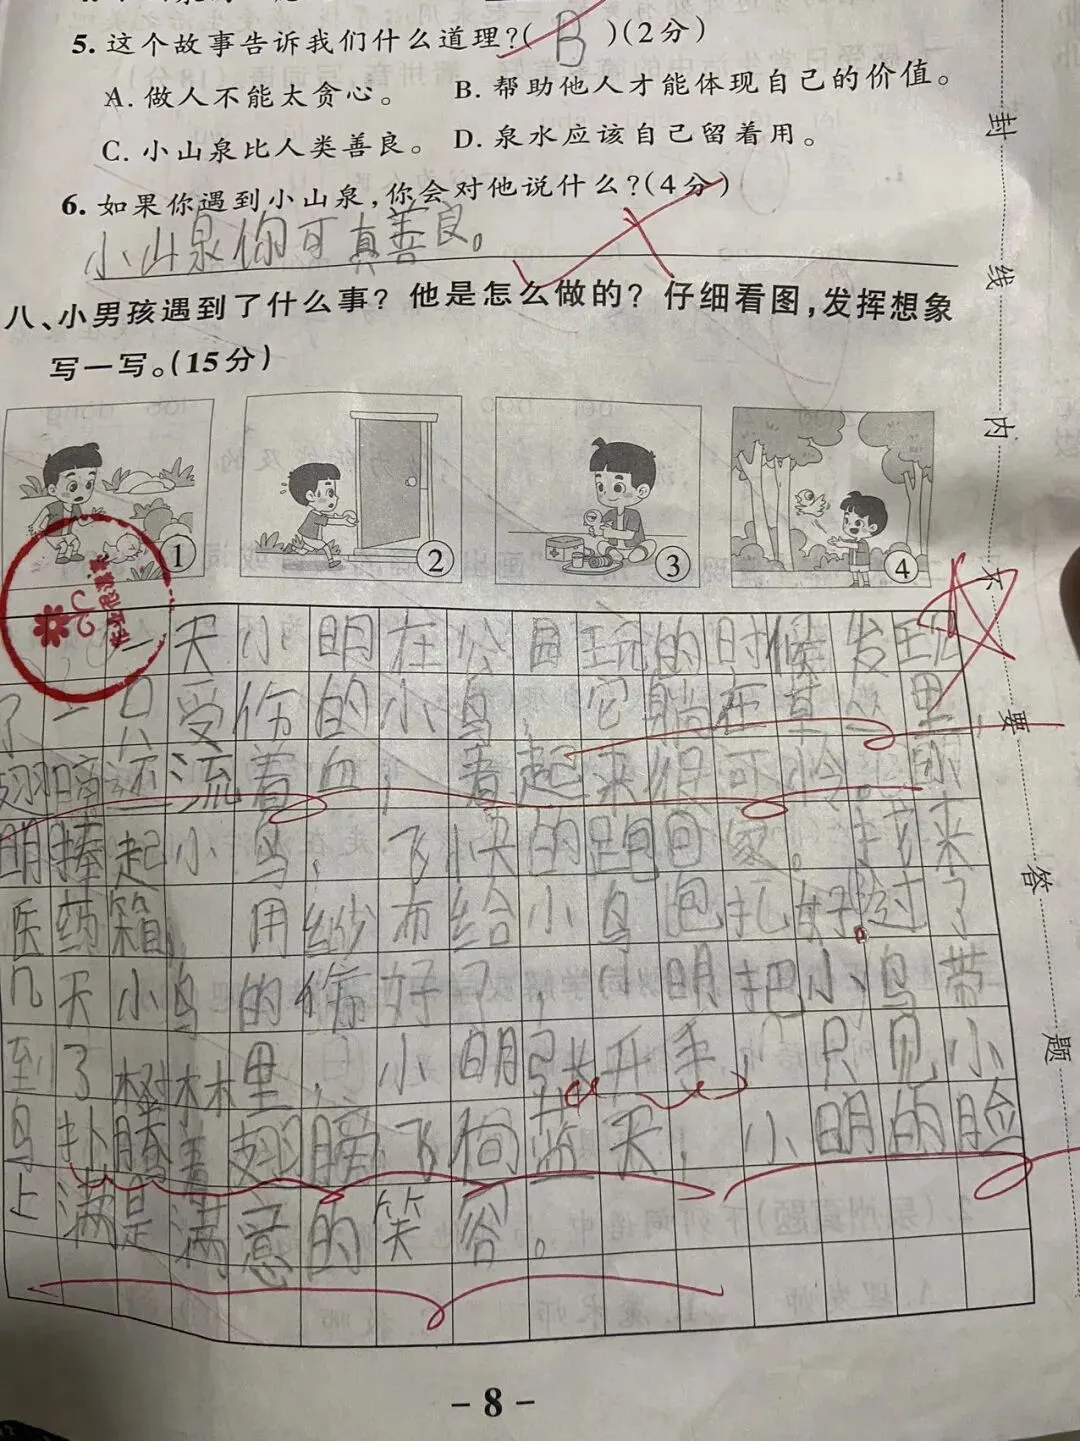 5. 这个故事告诉我们什么道理?( B )(2分)
A. 做人不能太贪心。 B. 帮助他人才能体现自己的价值。
C. 小山泉比人类善良。 D. 泉水应该自己留着用。
6. 如果你遇到小山泉,你会对他说什么?(4分)
小山泉你可真善良。
八、小男孩遇到了什么事? 他是怎么做的? 仔细看图,发挥想象
写一写。(15分)
① ② ③ ④
一天小明在公园玩的时候发现
了一只受伤的小鸟,它躺在草丛里
翅膀还流着血,看起来很可怜。小
明捧起小鸟,飞快的跑回家。找来
医药箱,用纱布给小鸟包扎好。过了
几天小鸟的伤好了,小明把小鸟带
到了树林里,小明张开手,只见小
鸟扑腾着翅膀飞向蓝天,小明的脸
上满是满意的笑容。
封
线
内
不
要
答
题
- 8 -